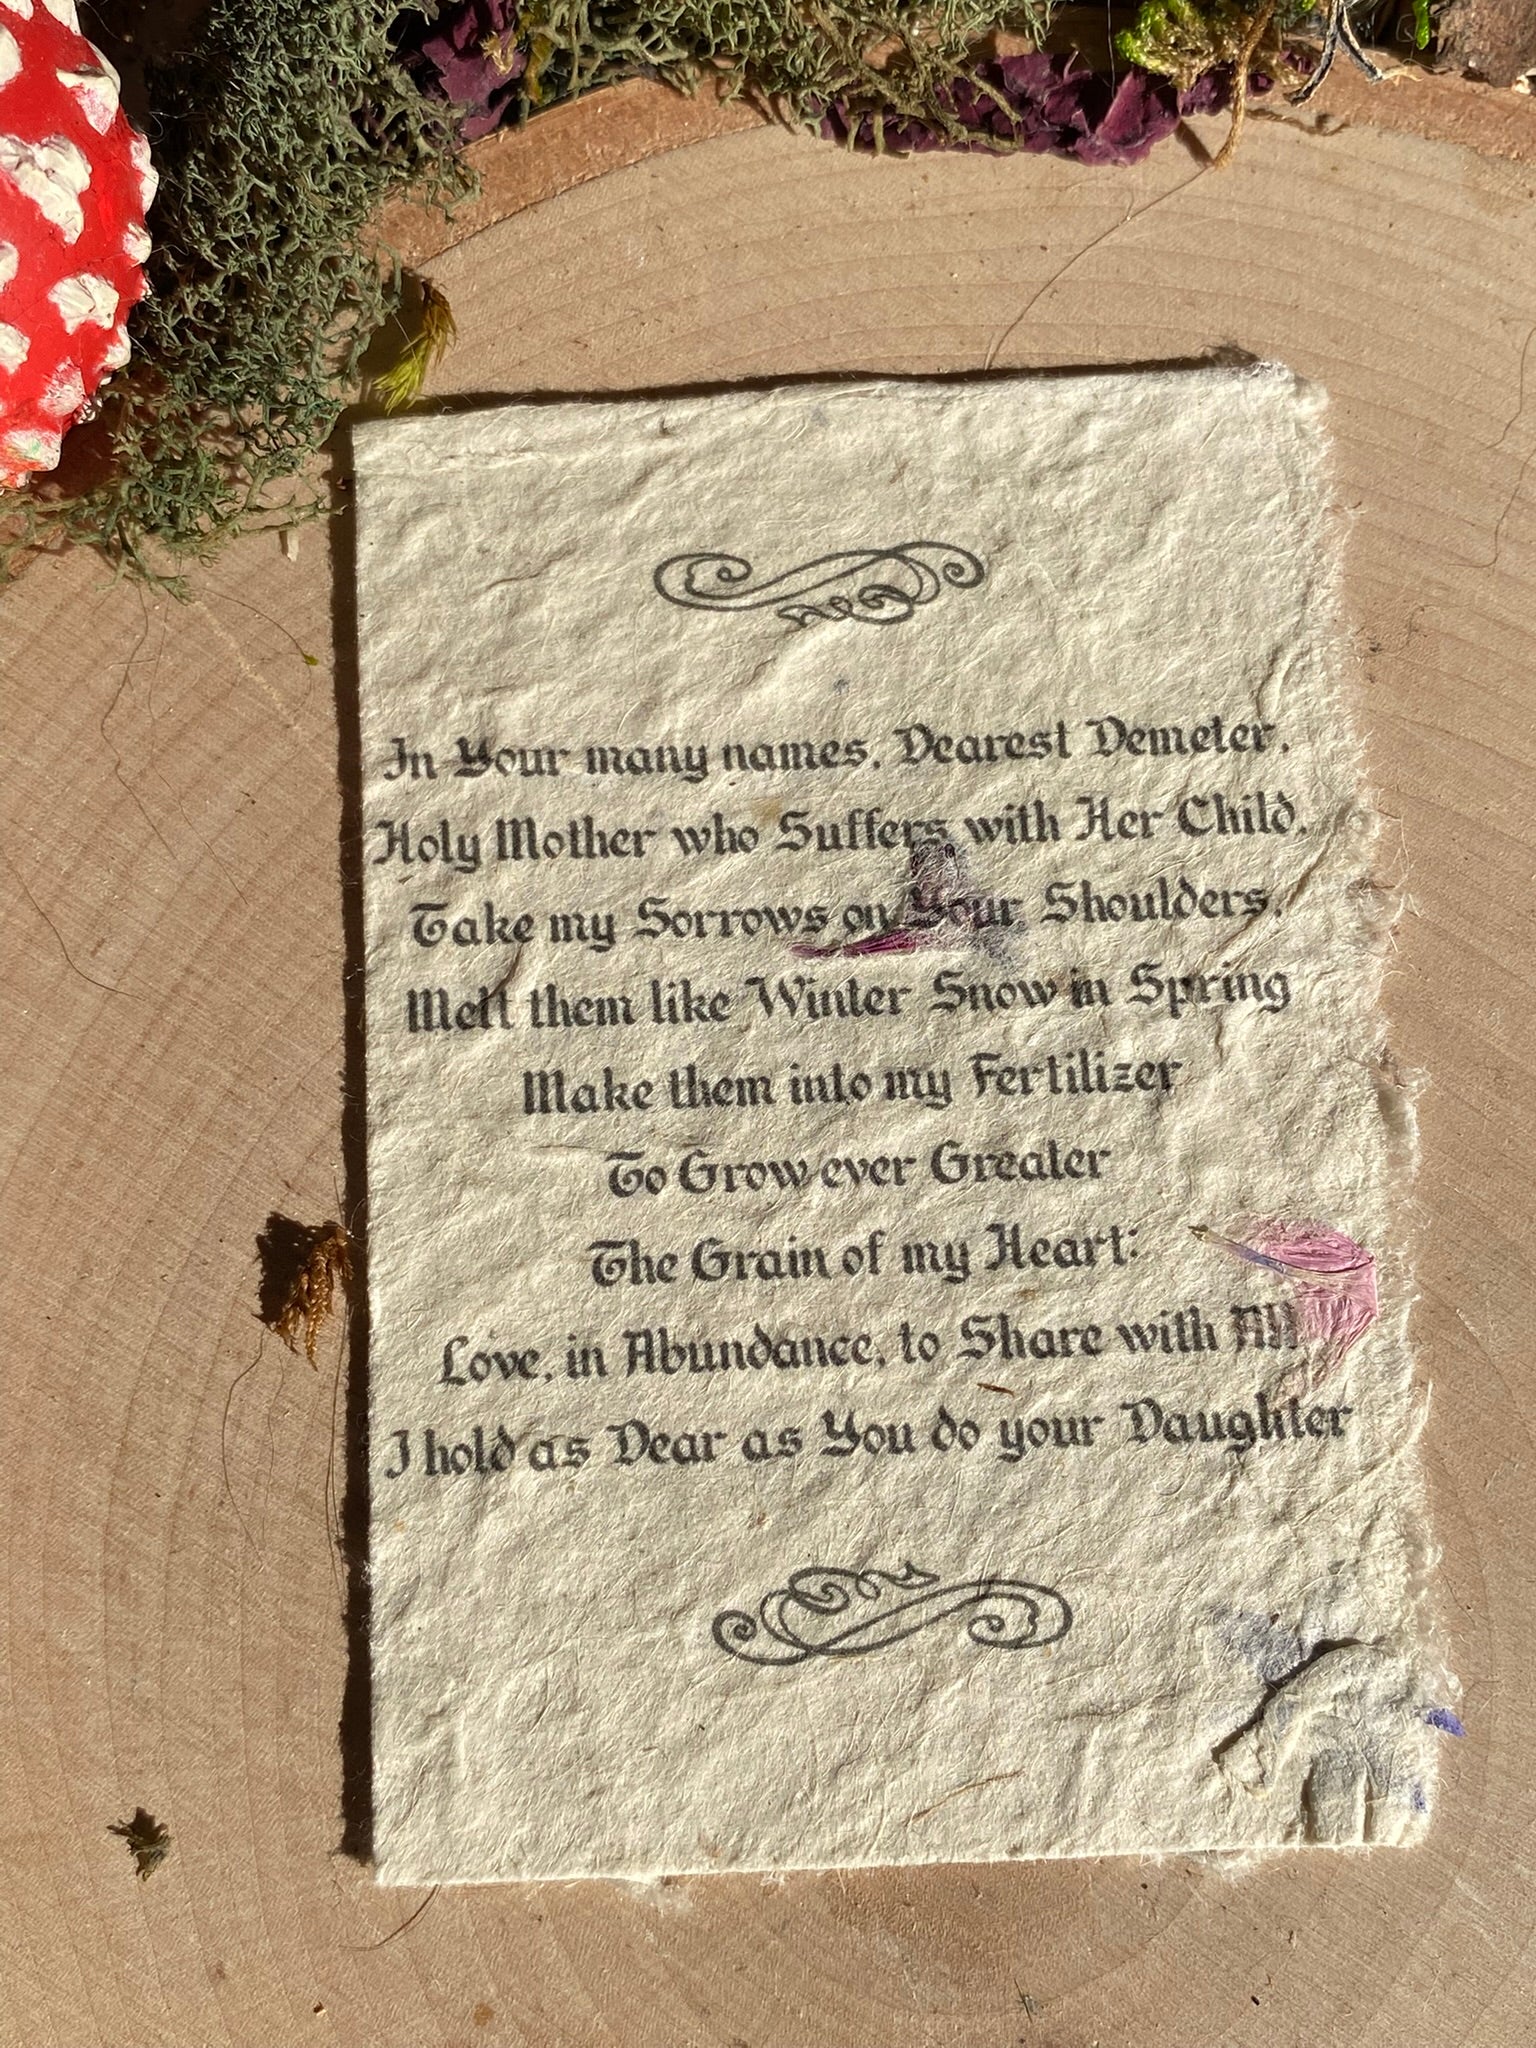 In Your many names, Dearest Demeter,
Holy Mother who Suffers with Her Child,
Take my Sorrows on Your Shoulders,
Melt them like Winter Snow in Spring
Make them into my Fertilizer
To Grow ever Greater
The Grain of my Heart:
Love, in Abundance, to Share with All
I hold as Dear as You do your Daughter